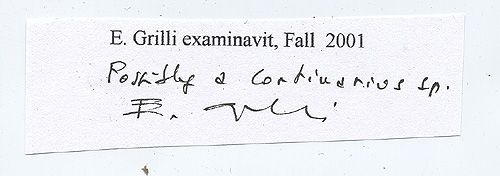 E. Grilli examinavit, Fall 2001
Possibly a Cortinarius sp.
E. Grilli